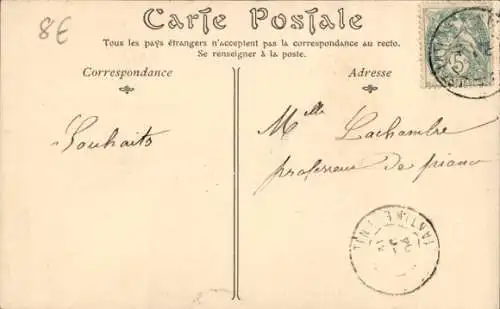 8€
Carte Postale
Tous les pays étrangers n'acceptent pas la correspondance au recto.
Se renseigner à la poste.
Correspondance
Adresse
5
Souhaits
Melle Lachambre
professeur de piano
TINTENIAC